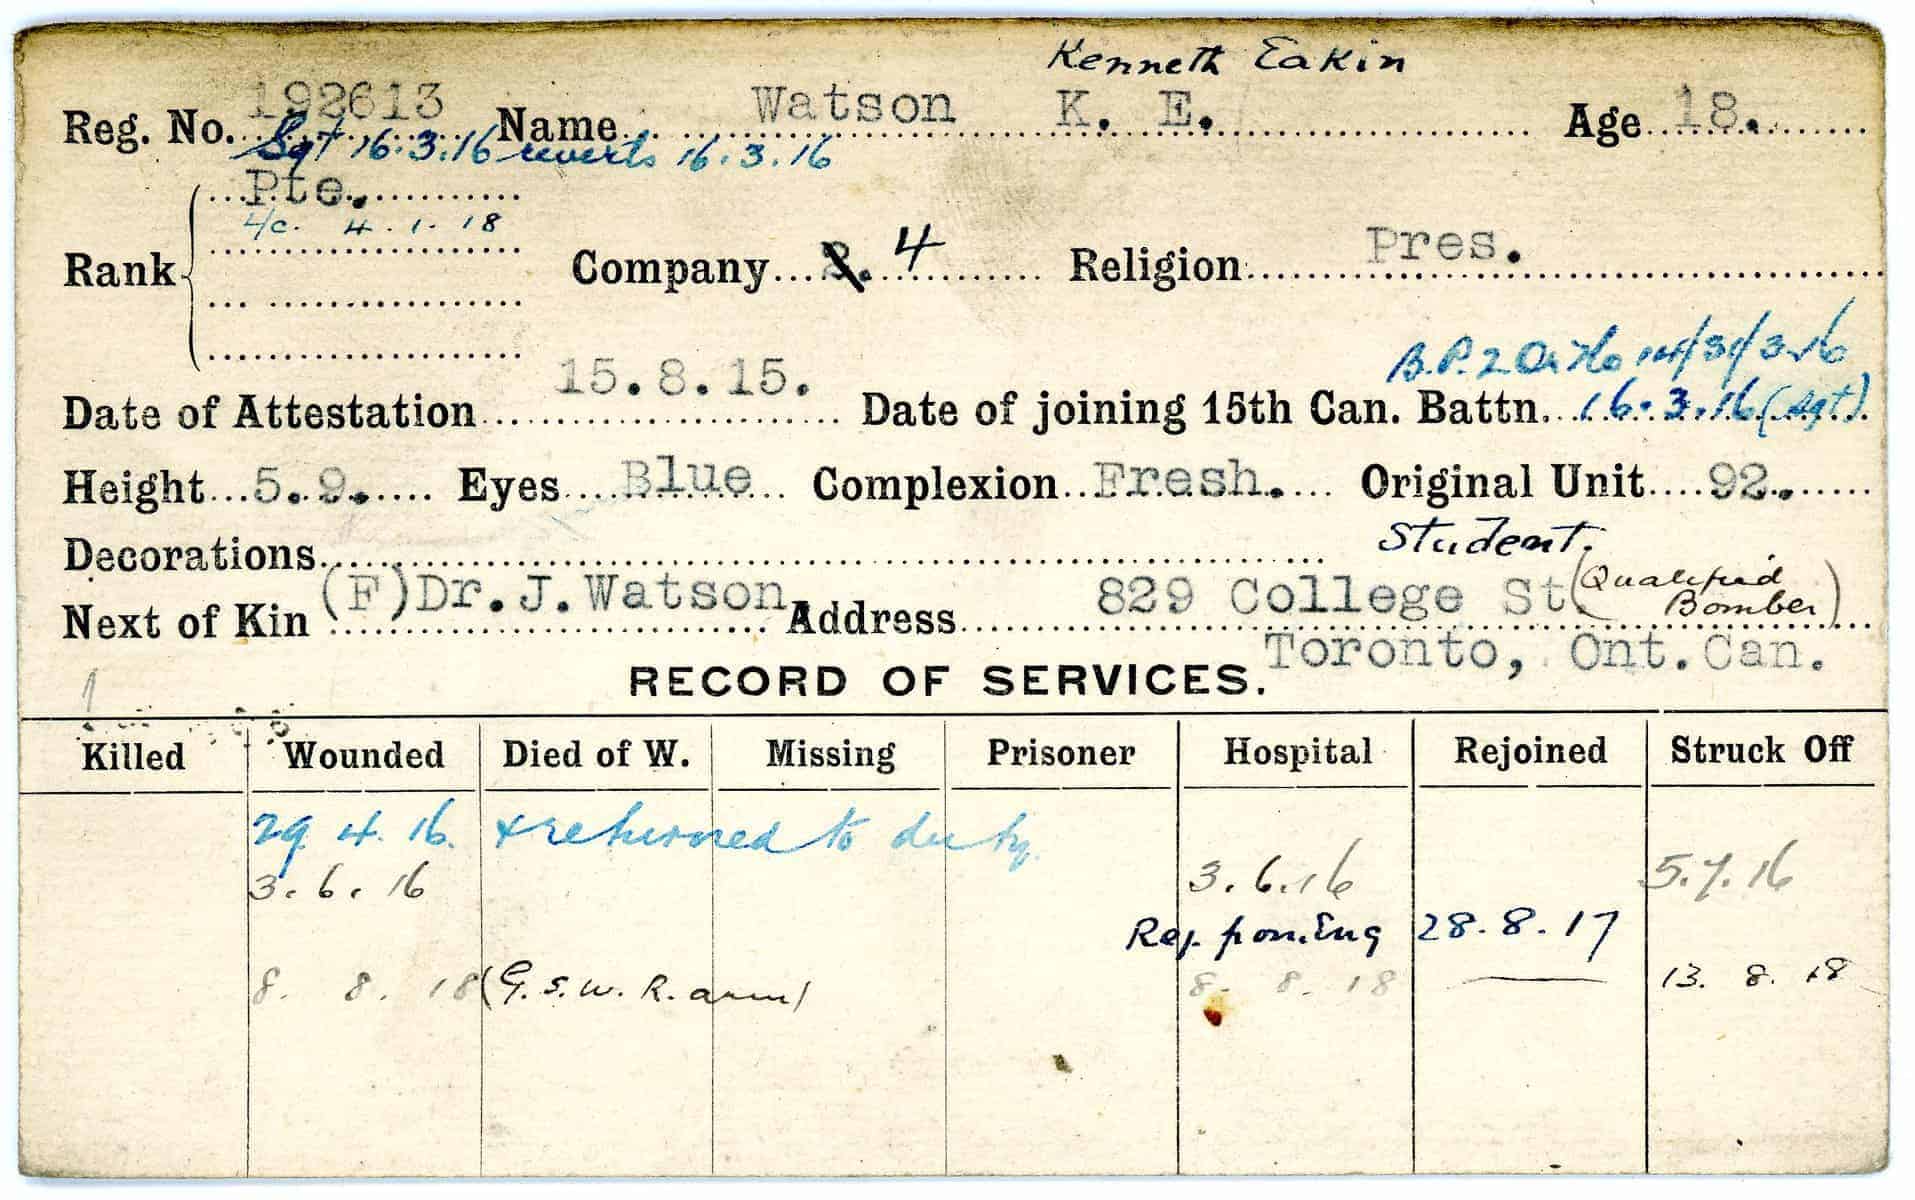 Kenneth Eakin
Reg. No. 192613 Name Watson K. E. Age 18.
Sgt 16.3.16 reverts 16.3.16
Pte.
L/c. 4.1.18
Rank Company 4 Religion Pres.
B.P.2 O.
Date of Attestation 15.8.15. Date of joining 15th Can. Battn. 16.3.16 (Sgt).
Height 5.9. Eyes Blue Complexion Fresh. Original Unit 92.
Decorations Student.
Next of Kin (F) Dr. J. Watson Address 829 College St. (Qualified Bomber)
Toronto, Ont. Can.
RECORD OF SERVICES.
Killed Wounded Died of W. Missing Prisoner Hospital Rejoined Struck Off
29.4.16. & returned to duty.
3.6.16 3.6.16 5.7.16
Rej. from Eng 28.8.17
8. 8. 18 (G.S.W. R. arm) 8. 8. 18 — 13. 8. 18